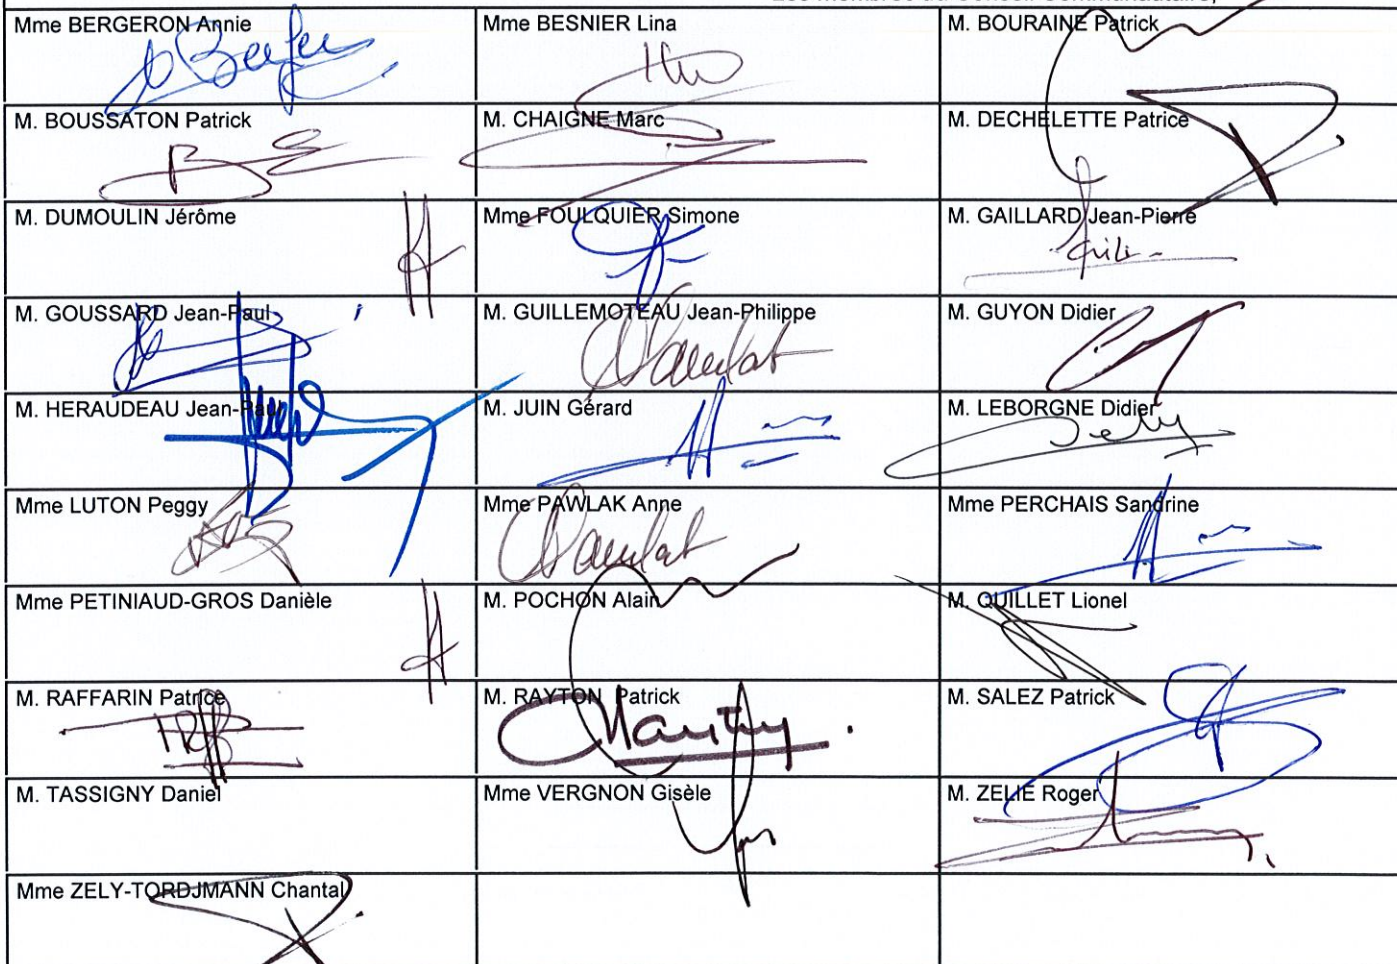 Les membres du Conseil Communautaire,
Mme BERGERON Annie
Mme BESNIER Lina
M. BOURAINE Patrick
M. BOUSSATON Patrick
M. CHAIGNE Marc
M. DECHELETTE Patrice
M. DUMOULIN Jérôme
Mme FOULQUIER Simone
M. GAILLARD Jean-Pierre
M. GOUSSARD Jean-Paul
M. GUILLEMOTEAU Jean-Philippe
M. GUYON Didier
M. HERAUDEAU Jean-Paul
M. JUIN Gérard
M. LEBORGNE Didier
Mme LUTON Peggy
Mme PAWLAK Anne
Mme PERCHAIS Sandrine
Mme PETINIAUD-GROS Danièle
M. POCHON Alain
M. QUILLET Lionel
M. RAFFARIN Patrice
M. RAYTON Patrick
M. SALEZ Patrick
M. TASSIGNY Daniel
Mme VERGNON Gisèle
M. ZELIE Roger
Mme ZELY-TORDJMANN Chantal